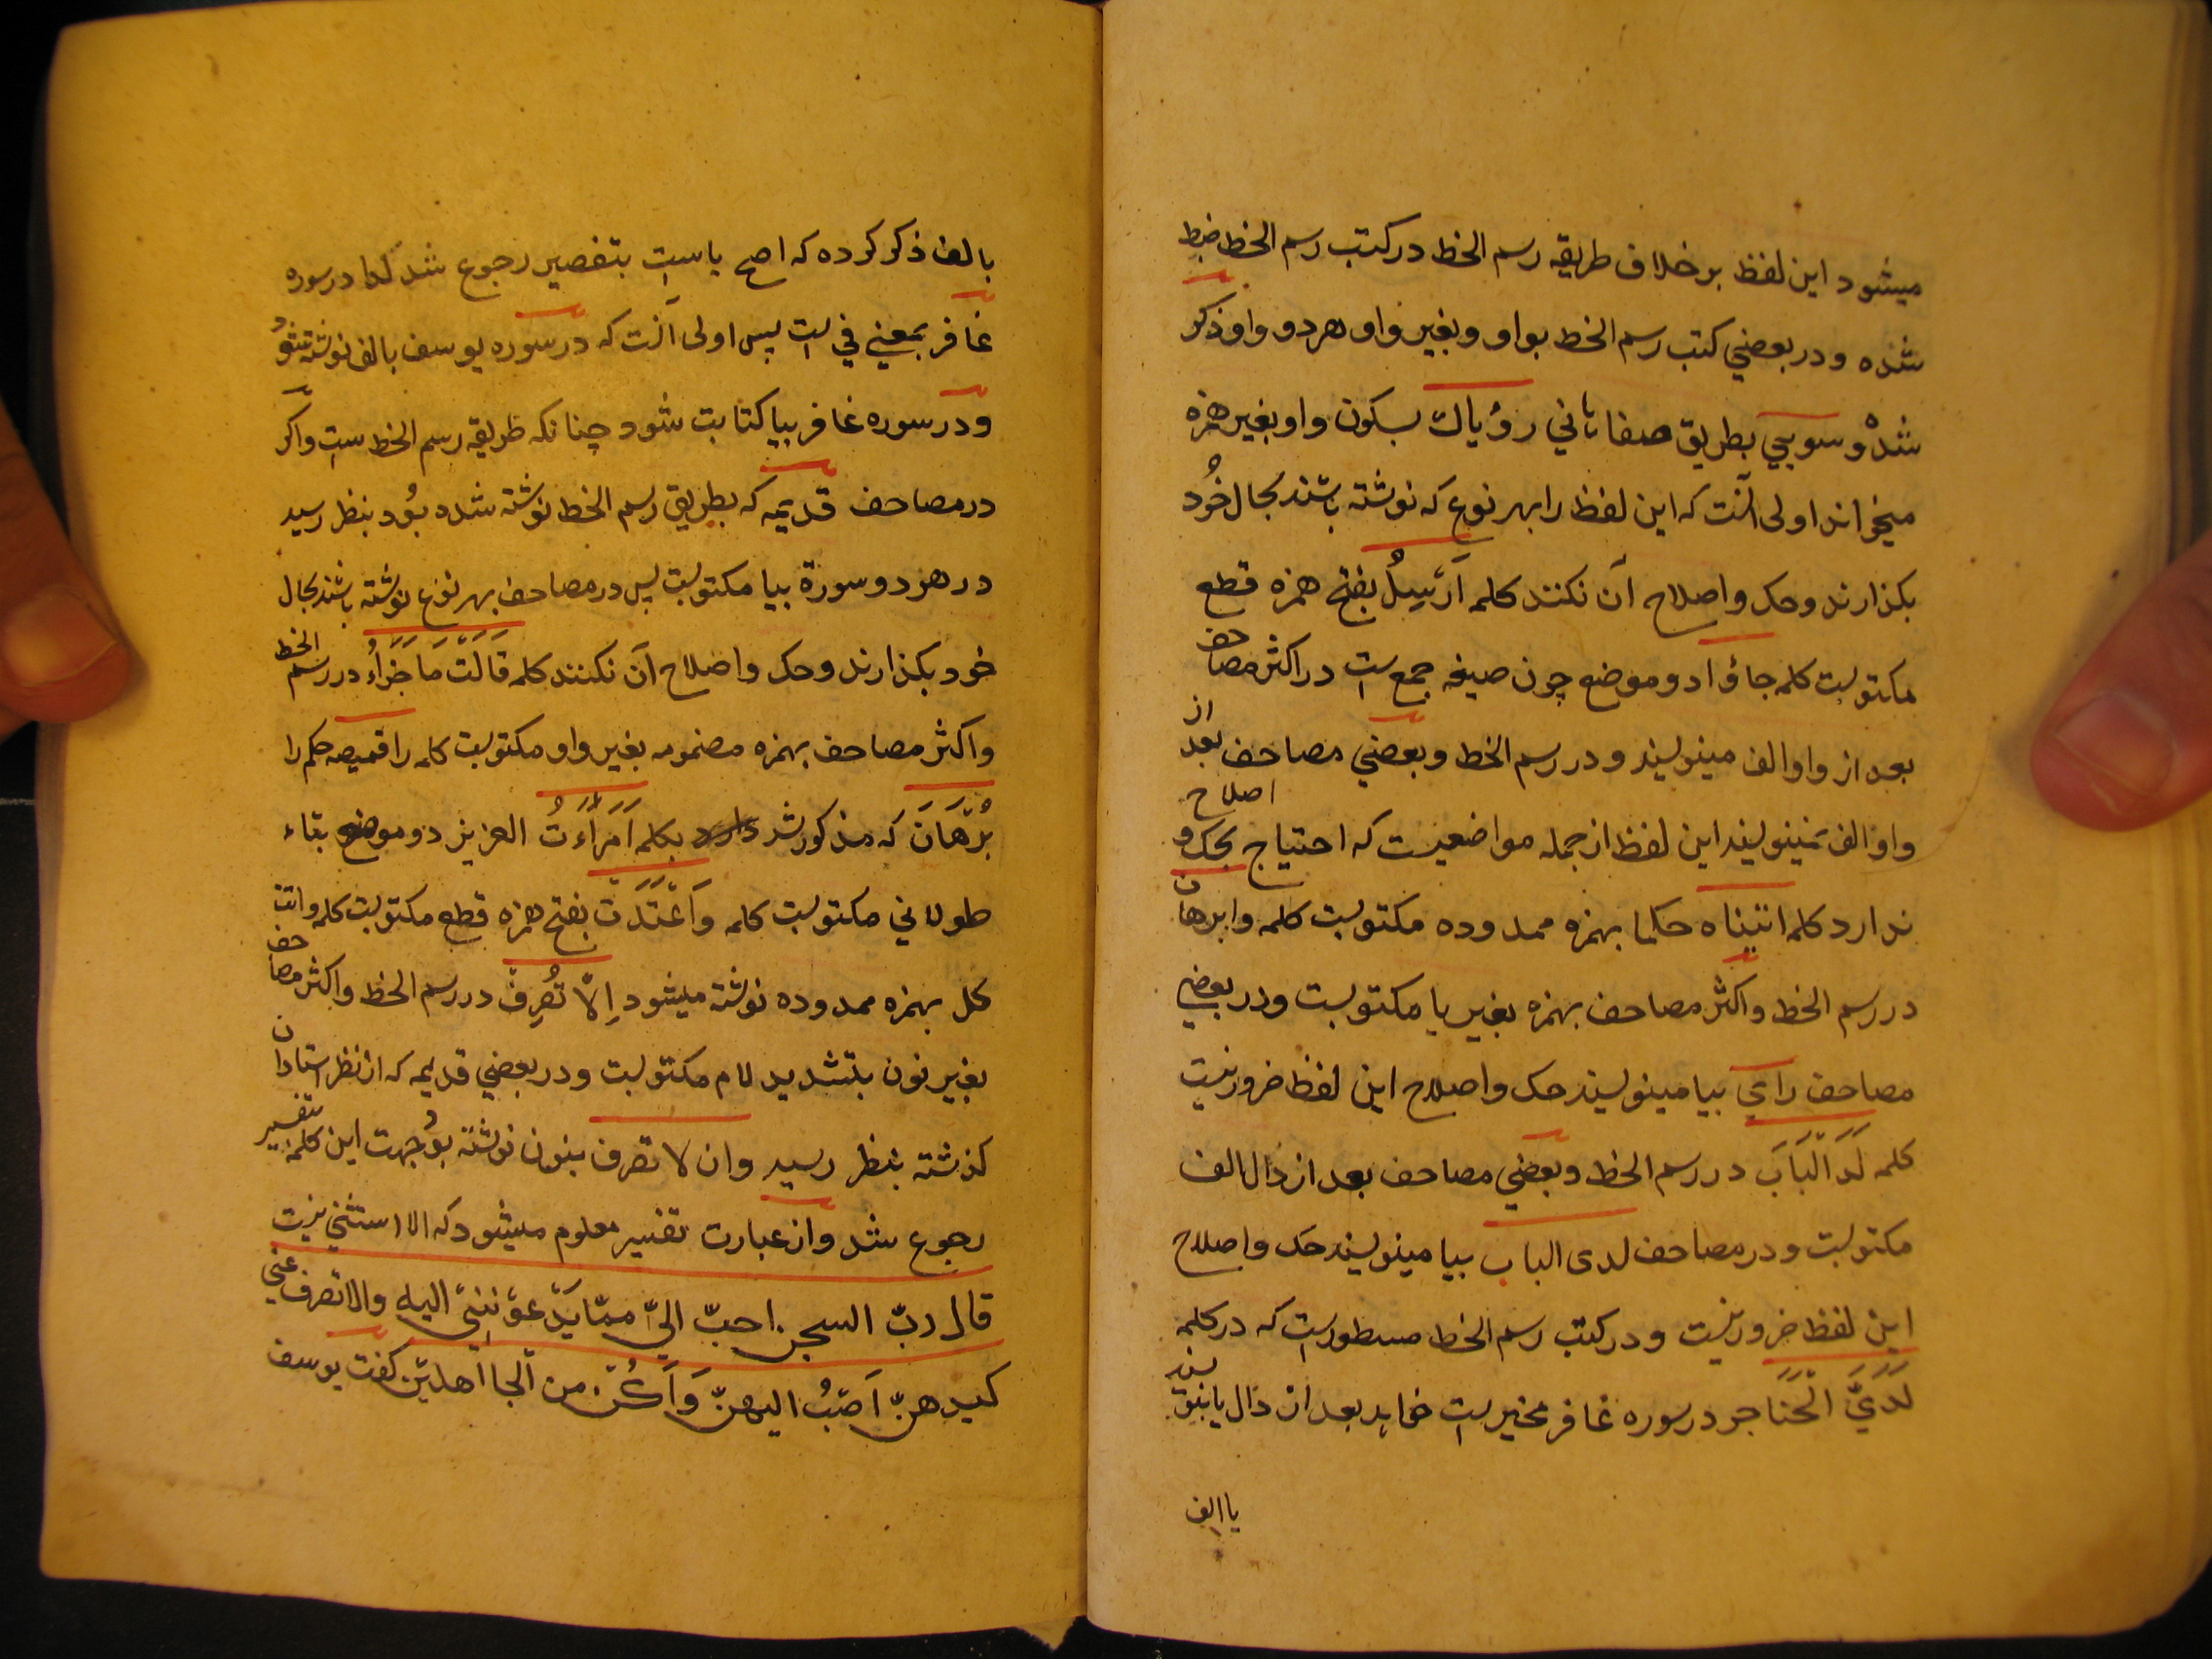 میشود این لفظ بر خلاف طریقه رسم الخط در کتب رسم الخط ضبط
شده و در بعضي کتب رسم الخط بواو و بغیر واو هر دو واو ذکر
شده وسوسي بطریق صفا ثاني رؤیاك بسکون واو بغیر همزه
میخواند اولی آنت که این لفظ را بهر نوع که نوشته باشند بحال خود
بکذارند وحک واصلاح آن نکنند کلمه اَرْسِلُ بفتح همزه قطع
مکتوبست کلمه جاؤا دو موضع چون صیغه جمع ست در اکثر مصاحف
بعد از واو الف مینویسند و در رسم الخط و بعضي مصاحف بعد از
واو الف نمینویسند این لفظ از جمله مواضعیست که احتیاج بحک و اصلاح
ندارد کلمه اتیناه حکما بهمزه ممدوده مکتوبست کلمه وا برهان
در رسم الخط واکثر مصاحف بهمزه بغیر یا مکتوبست ودر بعضي
مصاحف راي بیا مینویسند حک واصلاح این لفظ ضرور نیست
کلمه لَدَ الْبَابَ در رسم الخط و بعضي مصاحف بعد از دال الف
مکتوبست و در مصاحف لدی الباب بیا مینویسند حک واصلاح
این لفظ ضرور نیست و در کتب رسم الخط مسطورست که در کلمه
لَدَيَّ الْحَنَاجر در سوره غافر مخیرست خواهد بعد از دال یا بنویسند
یا الف
بالف ذکر کرده که اصح یاست بتفصیر رجوع شد لدا در سوره
غافر بمعني في ست پس اولی آنت که در سوره یوسف بالف نوشته شود
و در سوره غافر بیا کتابت شود چنانکه طریقه رسم الخط ست واکر
در مصاحف قدیمه که بطریق رسم الخط نوشته شده بود بنظر رسید
در هر دو سورة بیا مکتوبست پس در مصاحف بهر نوع نوشته باشند بحال
خود بکذارند وحک واصلاح آن نکنند کلمه قَالَتْ مَا جَزَاءُ در رسم الخط
واکثر مصاحف بهمزه مضمومه بغیر واو مکتوبست کلمه را قمیصه حکم را
بُرْهَانَ که مذکور شد دارد بکلمه اَمَرَاَءتُ العزیز دو موضع بتاء
طولاني مکتوبست کلمه وَاَعْتَدَتْ بفتح همزه قطع مکتوبست کلمه واتت
کل بهمزه ممدوده نوشته میشود اِلاّ تُصْرِفْ در رسم الخط واکثر مصاحف
بغیر نون بتشدید لام مکتوبست ودر بعضي قدیمه که از نظر استادان
کذشته بنظر رسید وان لا تصرف بنون نوشته بود جهت این کلمه بتفسیر
رجوع شد و از عبارت تفسیر معلوم میشود که الا استثني نیست
قال ربّ السجن احبّ اليّ ممّا یَدْعُوْنَنِيْ الیه والا تصرف عني
کیدهنّ اَصْبُ الیهنّ وَاَکُنْ من الجاهلین کفت یوسف